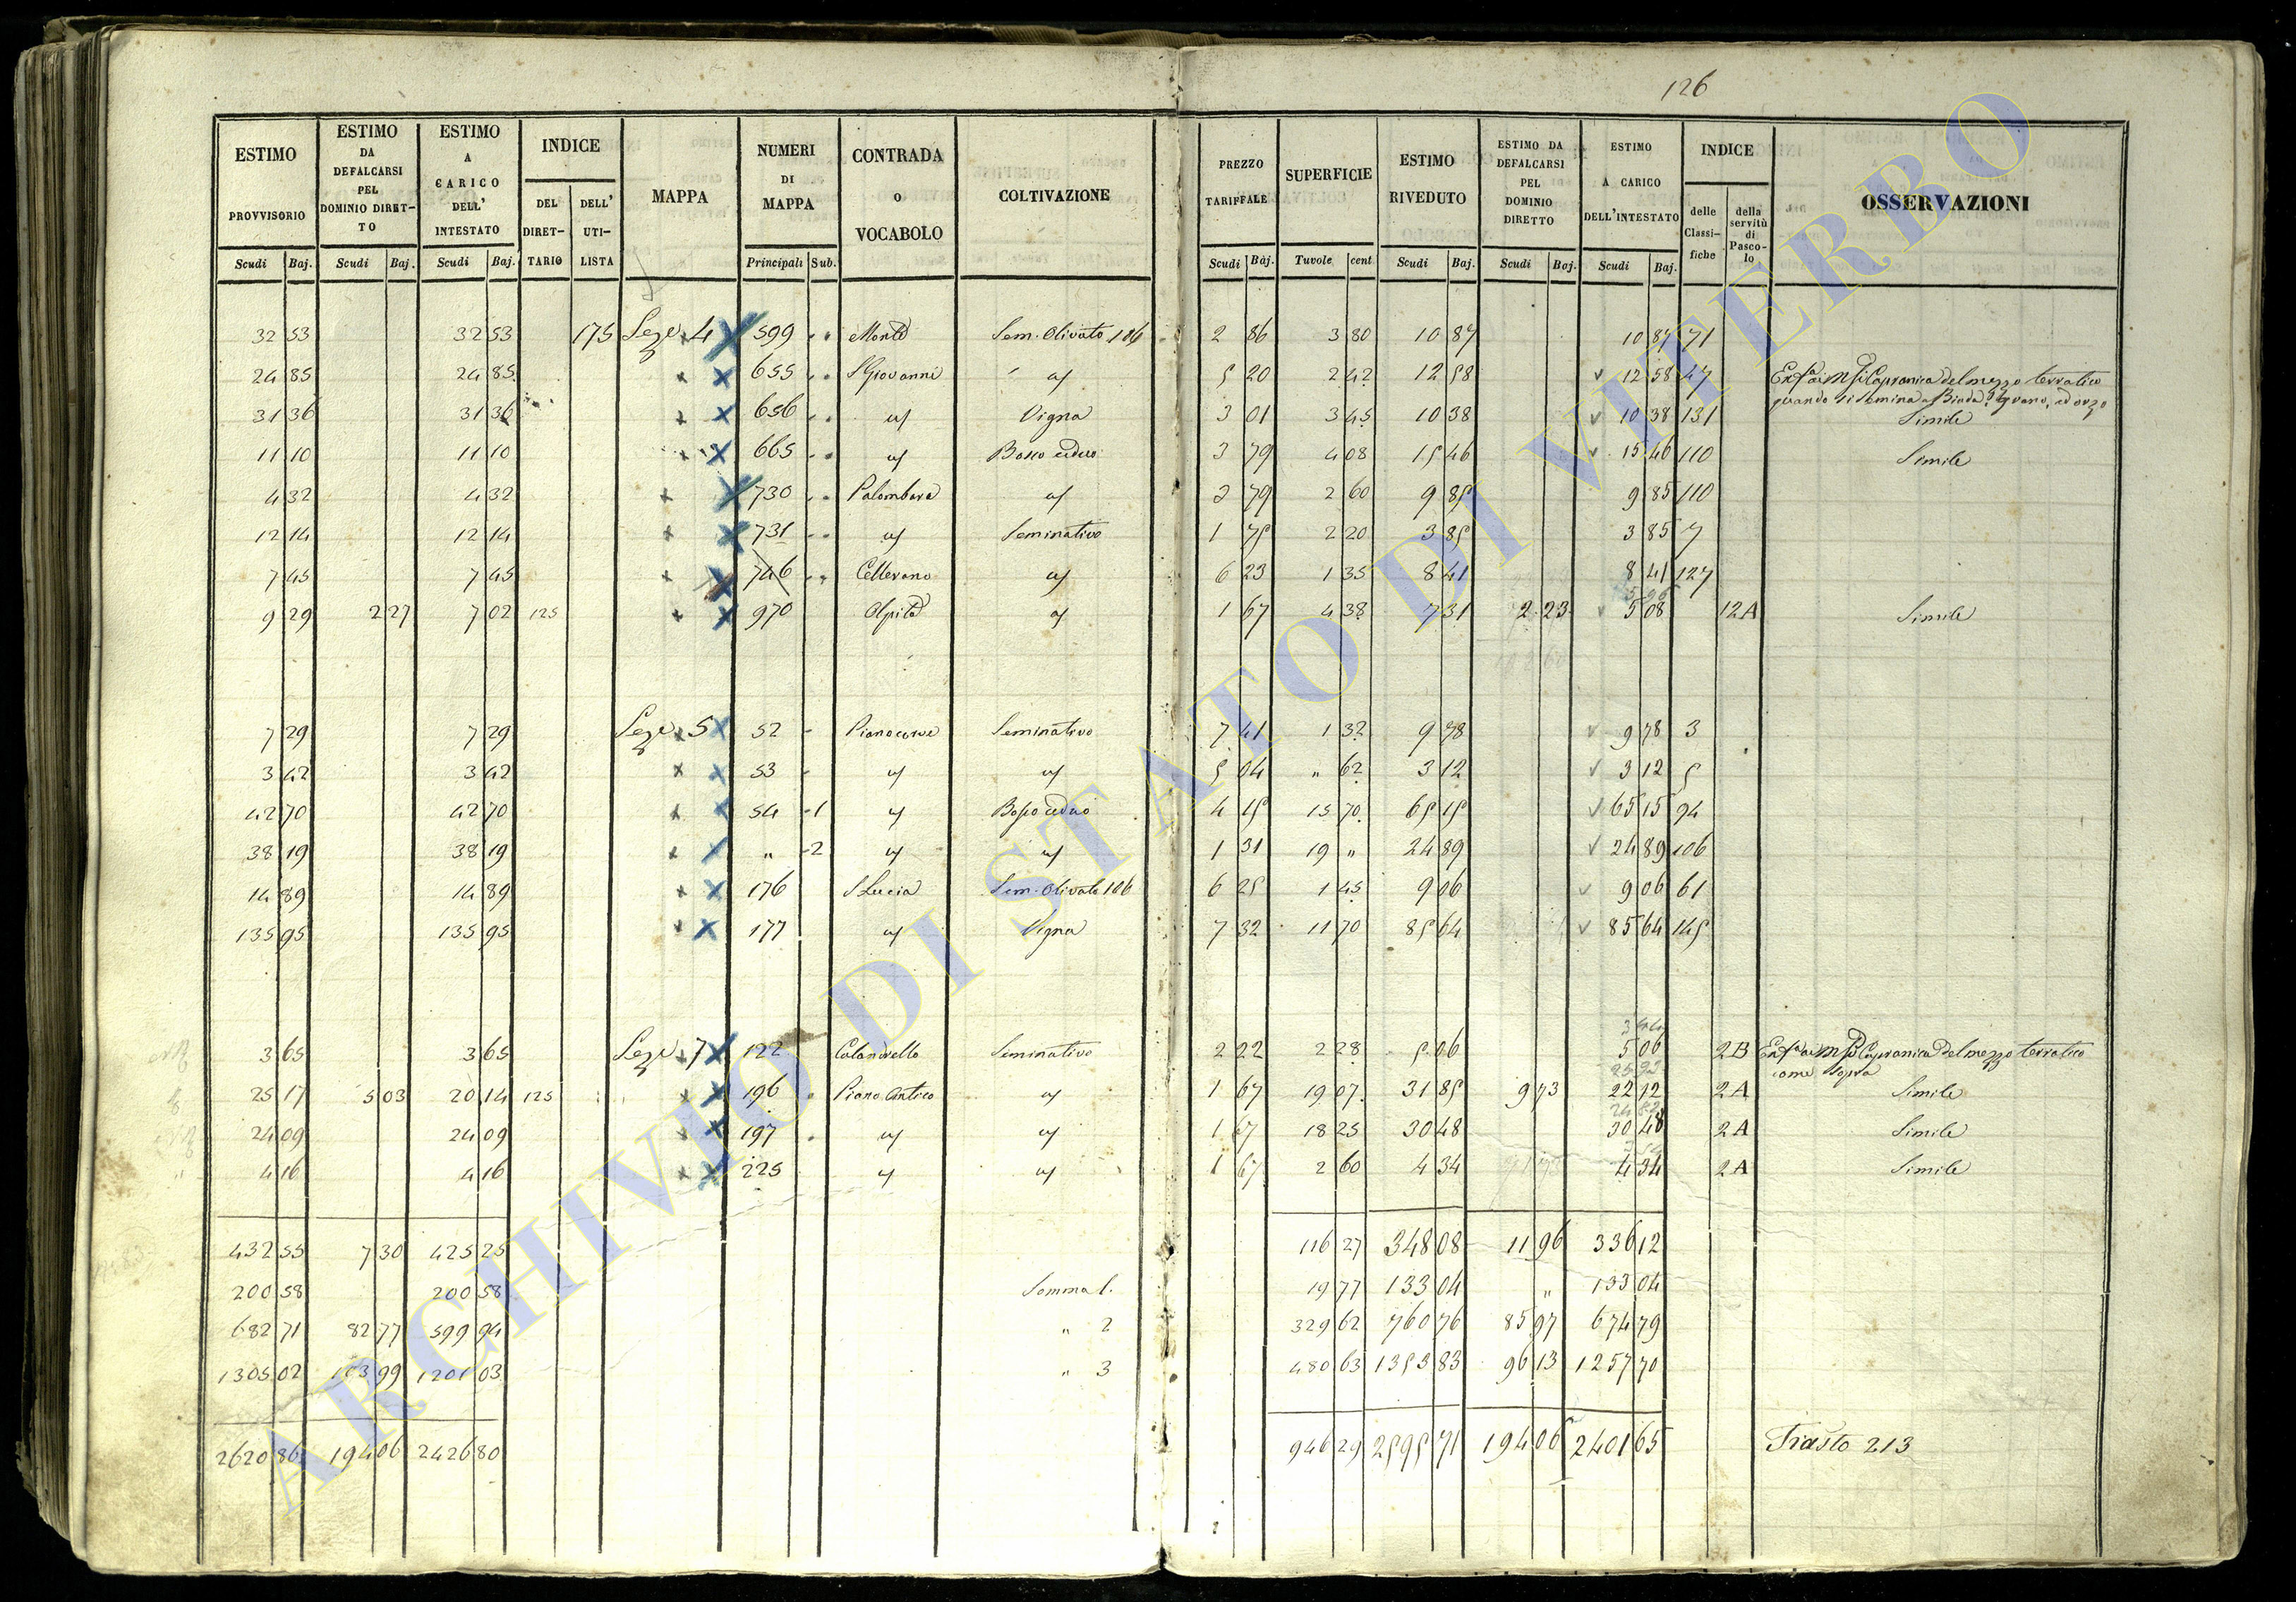 126
ESTIMO PROVVISORIO | ESTIMO DA DEFALCARSI PEL DOMINIO DIRETTO | ESTIMO A CARICO DELL' INTESTATO | INDICE DEL DIRETTARIO | DELL' UTILISTA | MAPPA | NUMERI DI MAPPA | CONTRADA O VOCABOLO | COLTIVAZIONE | PREZZO TARIFFALE | SUPERFICIE | ESTIMO RIVEDUTO | ESTIMO DA DEFALCARSI PEL DOMINIO DIRETTO | ESTIMO A CARICO DELL'INTESTATO | INDICE delle Classifiche | della servitù di Pascolo | OSSERVAZIONI
Scudi Baj. | Scudi Baj. | Scudi Baj. | Principali Sub. | Scudi Baj. | Tavole cent | Scudi Baj. | Scudi Baj. | Scudi Baj.
32 53 | 32 53 | 175 | Seze 4 | 599 | Monte | Sem. Olivato 106 | 2 86 | 3 80 | 10 87 | 10 87 | 71
24 85 | 24 85 | 655 | S Giovanni | " | 5 20 | 2 42 | 12 58 | 12 58 | 47 | Capranica del mezzo terratico
quando si semina a Biada, grano, ed orzo
31 36 | 31 36 | 656 | " | Vigna | 3 01 | 3 45 | 10 38 | 10 38 | 131 | Simile
11 10 | 11 10 | 665 | " | Bosco ceduo | 3 79 | 4 08 | 15 46 | 15 46 | 110 | Simile
4 32 | 4 32 | 730 | Palombara | " | 3 79 | 2 60 | 9 85 | 9 85 | 110
12 14 | 12 14 | 731 | " | Seminativo | 1 75 | 2 20 | 3 85 | 3 85 | 7
7 45 | 7 45 | 746 | Cellerano | " | 6 23 | 1 35 | 8 41 | 8 41 | 127
9 29 | 2 27 | 7 02 | 125 | 970 | " | 1 67 | 4 38 | 7 31 | 2 23 | 5 08 | 12A | Simile
7 29 | 7 29 | Seze 5 | 52 | Pianocorve | Seminativo | 7 41 | 1 32 | 9 78 | 9 78 | 3
3 42 | 3 42 | 53 | " | " | 5 04 | " 62 | 3 12 | 3 12 | 5
42 70 | 42 70 | 54 | 1 | " | Bosco ceduo | 4 15 | 15 70 | 65 15 | 65 15 | 94
38 19 | 38 19 | " | 2 | " | " | 1 31 | 19 " | 24 89 | 24 89 | 106
14 89 | 14 89 | 176 | S Lucia | Sem. Olivato 106 | 6 25 | 1 45 | 9 06 | 9 06 | 61
135 95 | 135 95 | 177 | " | Vigna | 7 32 | 11 70 | 85 64 | 85 64 | 145
3 65 | 3 65 | Seze 7 | 122 | Calandrello | Seminativo | 2 22 | 2 28 | 5 06 | 5 06 | 2B | Capranica del mezzo terratico
come sopra
25 17 | 5 03 | 20 14 | 125 | 196 | Piano Antico | " | 1 67 | 19 07 | 31 85 | 9 73 | 22 12 | 2A | Simile
24 09 | 24 09 | 197 | " | " | 1 67 | 18 25 | 30 48 | 30 48 | 2A | Simile
4 16 | 4 16 | 225 | " | " | 1 67 | 2 60 | 4 34 | 4 34 | 2A | Simile
432 55 | 7 30 | 425 25 | 116 27 | 348 08 | 11 96 | 336 12
200 58 | 200 58 | Somma 1. | 19 77 | 133 04 | " | 133 04
682 71 | 82 77 | 599 94 | " 2 | 329 62 | 760 76 | 85 97 | 674 79
1305 02 | 103 99 | 1201 03 | " 3 | 480 63 | 1353 83 | 96 13 | 1257 70
2620 86 | 194 06 | 2426 80 | 946 29 | 2595 71 | 194 06 | 2401 65 | 213
ARCHIVIO DI STATO DI VITERBO